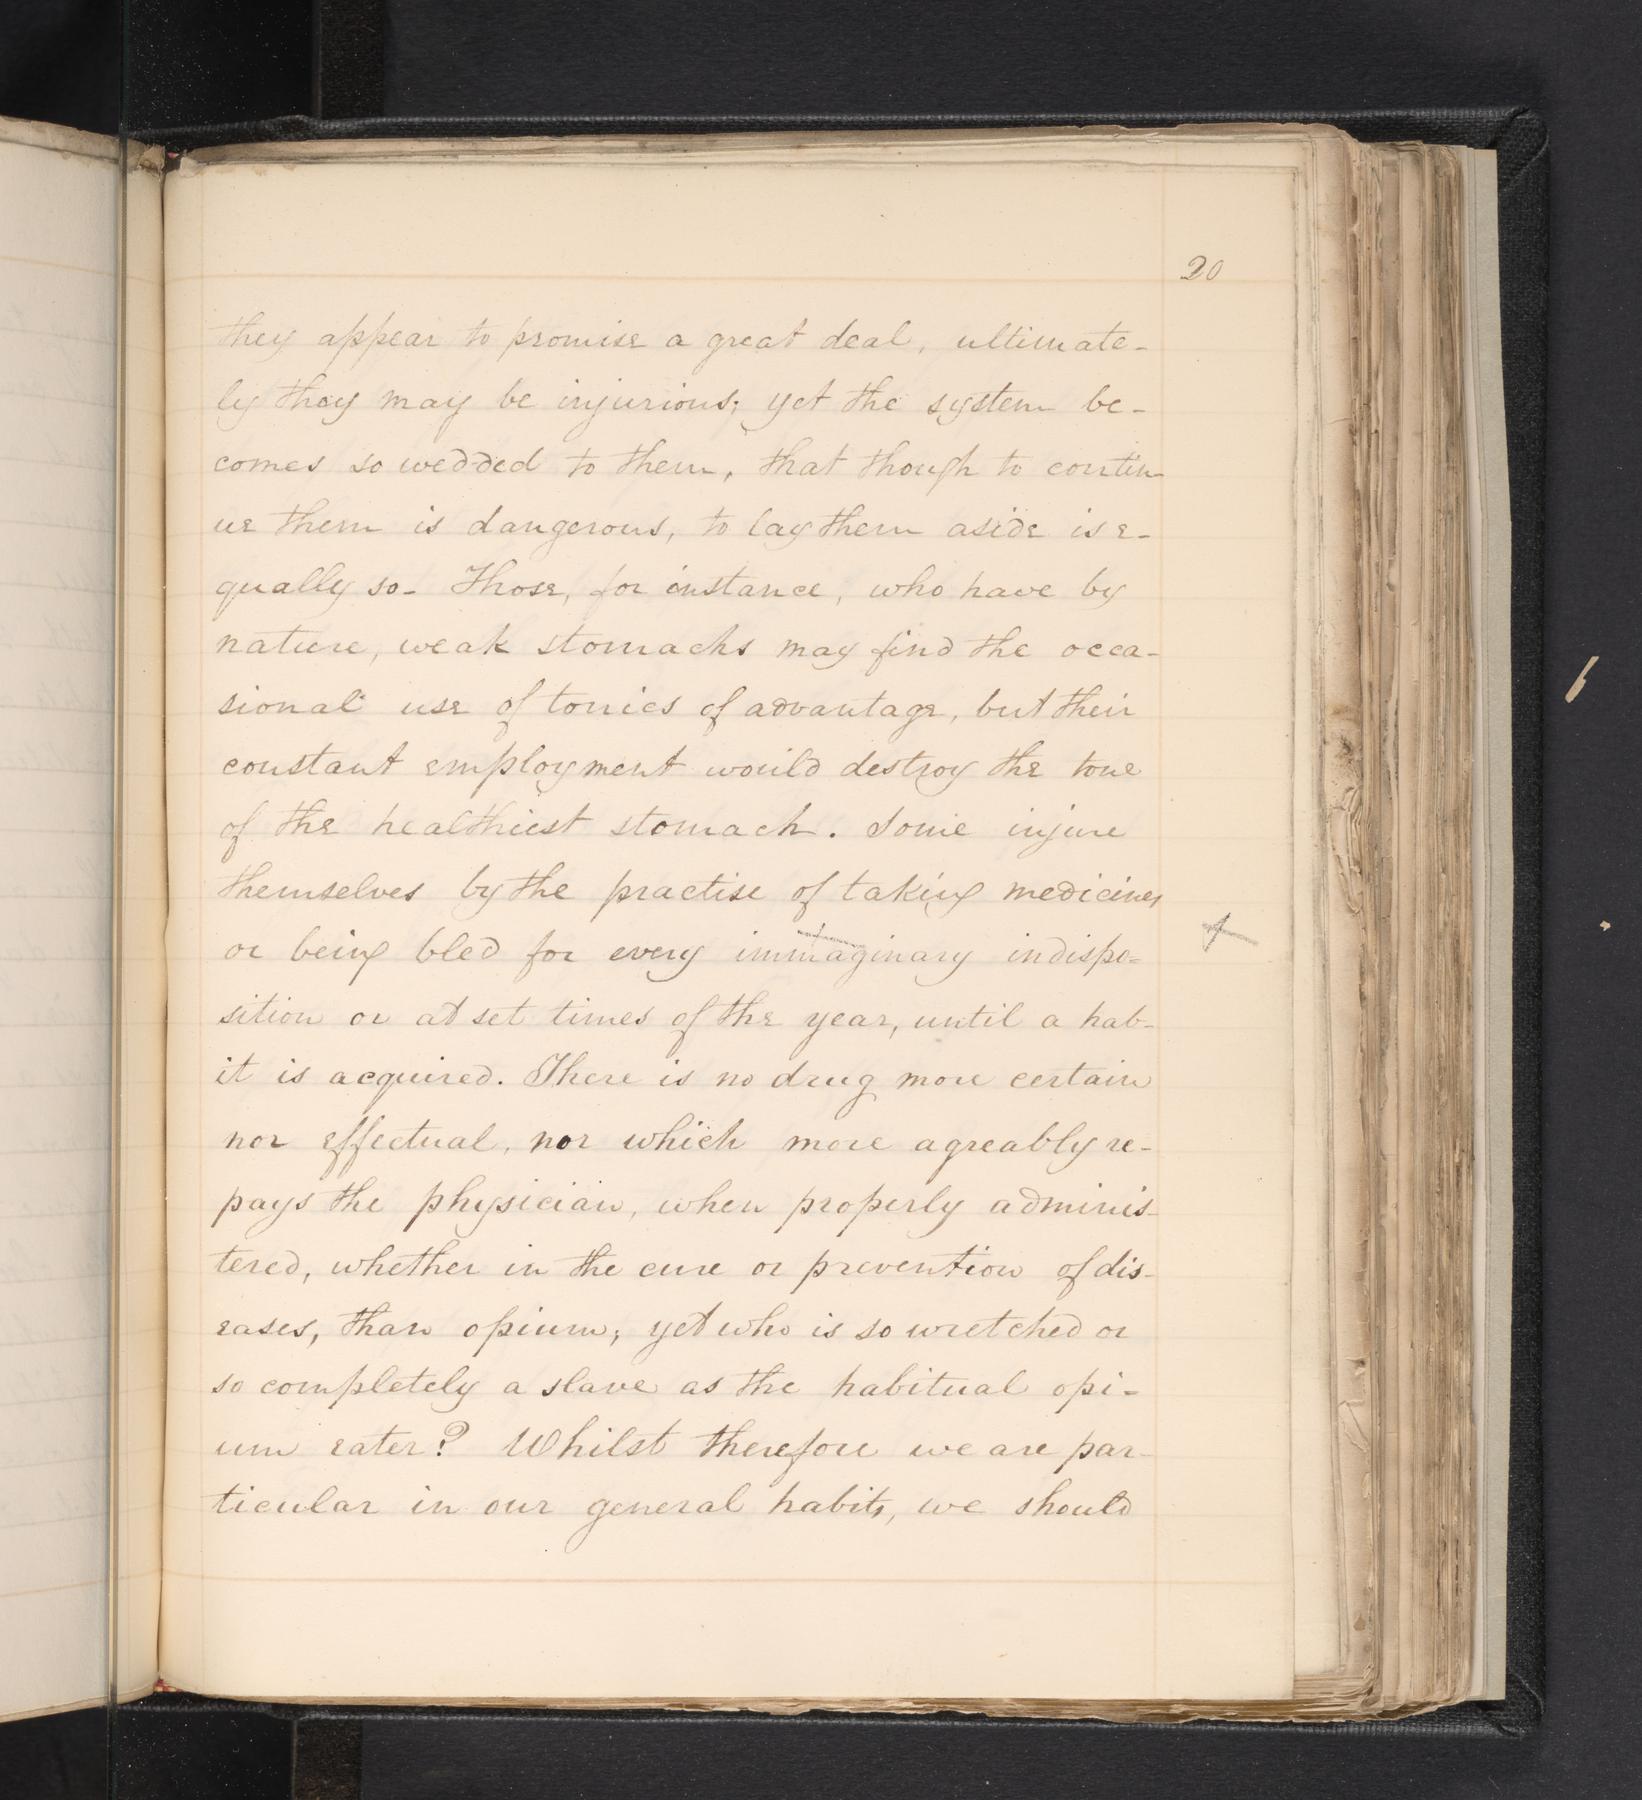 20
they appear to promise a great deal, ultimate-
ly they may be injurious; yet the system be-
comes so wedded to them, that though to contin-
ue them is dangerous, to lay them aside is e-
qually so- Those, for instance, who have by
nature, weak stomachs may find the occa-
sional use of tonics of advantage, but their
constant employment would destroy the tone
of the healthiest stomach. Some injure
themselves by the practise of taking medicines
or being bled for every immaginary indispo=
sition or at set times of the year, until a hab-
it is acquired. There is no drug more certain
nor effectual, nor which more agreably re-
pays the physician, when properly adminis-
tered, whether in the cure or prevention of dis-
eases, than opium; yet who is so wretched or
so completely a slave as the habitual opi-
um eater? Whilst therefore we are par-
ticular in our general habits, we should